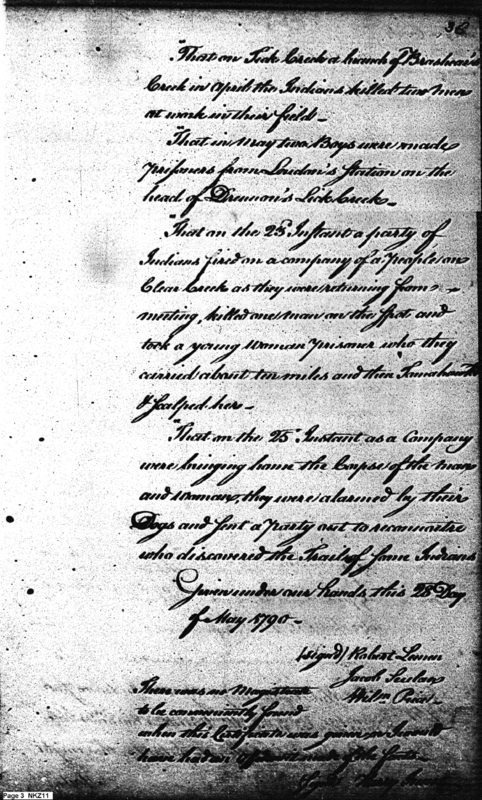 36
"That on Teek Creek a branch of Brashear's
Creek in April the Indians killed two men
at work in their field -
"That in May two Boys were made
prisoners from Loudon's Station on the
head of Drennon's Lick Creek -
"That on the 23d Instant a party of
Indians fired on a company of a people on
Clear Creek as they were returning from
meeting, killed one man on the Spot and
took a young Woman prisoner who they
carried about ten miles and then Tomahawk'd
& Scalped her -
"That on the 25 Instant as a Company
were bringing home the Corpse of the man
and woman, they were alarmed by their
Dogs and sent a Party out to reconnoitre
who discovered the Trail of some Indians
Given under our hands this 28 Day
of May 1790 -
(signed) Robert Lemen
Jacob
Wilm
There was no Magistrate
to be conveniently found
when this Certificate was given or I would
have had an of the
Page 3 NKZ11